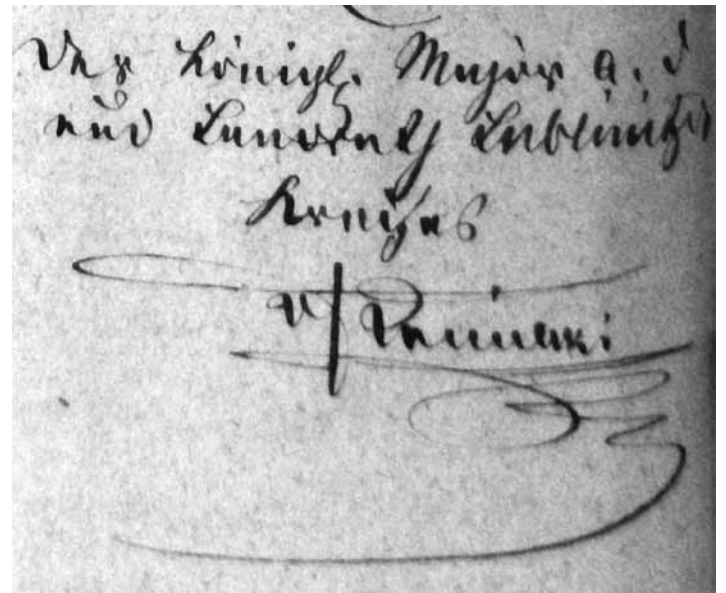 Der Königl. Major a. d
und Landrath Lublinitzer
Kreises
v